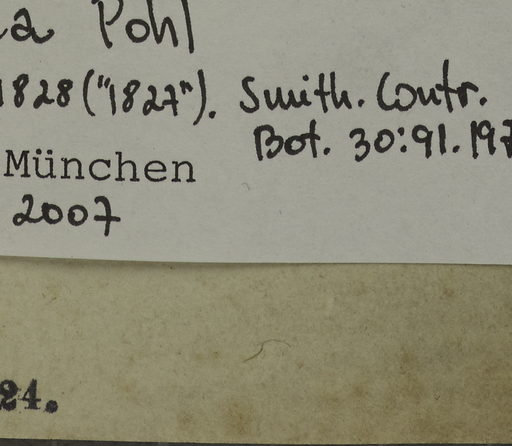 a Pohl
1828 ("1827"). Smith. Contr.
Bot. 30:91. 197
München
2007
24.